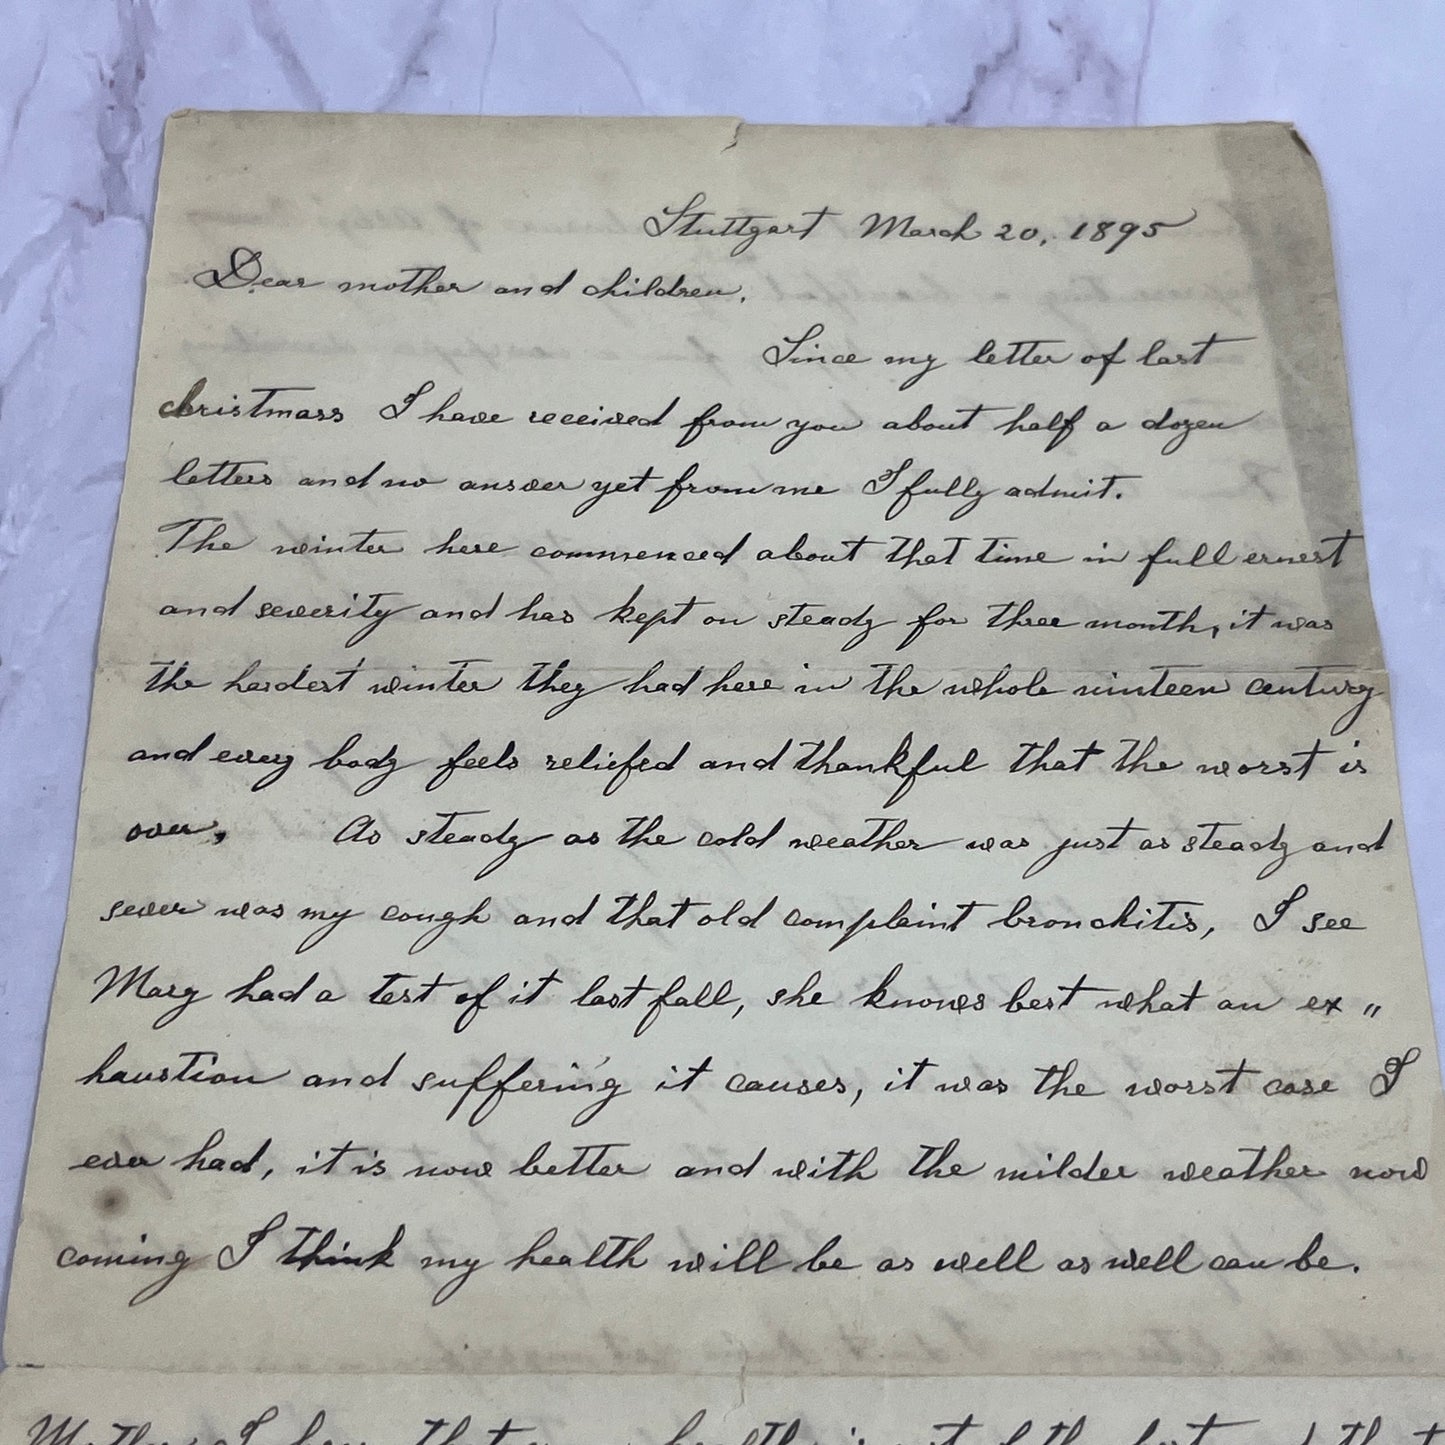 Stuttgart March 20, 1895
Dear mother and children,
Since my letter of last
christmass I have received from you about half a dozen
letters and no answer yet from me I fully admit.
The winter here commenced about that time in full ernest
and severity and has kept on steady for three month, it was
the hardest winter they had here in the whole ninteen century
and every body feels reliefed and thankful that the worst is
over, As steady as the cold weather was just as steady and
sever was my cough and that old complaint bronchitis, I see
Mary had a test of it last fall, she knows best what an ex "
haustion and suffering it causes, it was the worst case I
ever had, it is now better and with the milder weather now
coming I think my health will be as well as well can be.